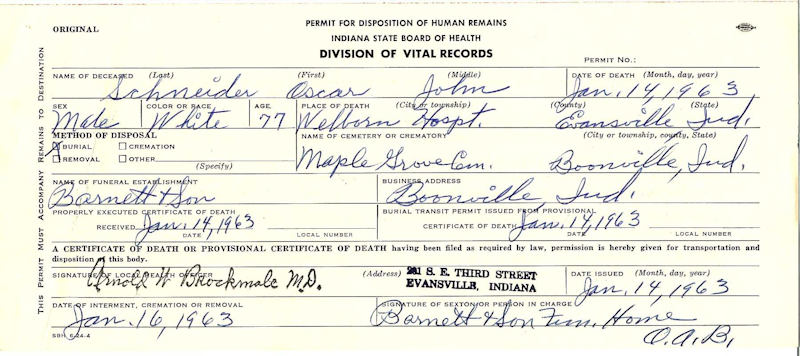 ORIGINAL
PERMIT FOR DISPOSITION OF HUMAN REMAINS
INDIANA STATE BOARD OF HEALTH
DIVISION OF VITAL RECORDS
PERMIT NO.:
THIS PERMIT MUST ACCOMPANY REMAINS TO DESTINATION
NAME OF DECEASED (Last) (First) (Middle) DATE OF DEATH (Month, day, year)
Schneider Oscar John Jan. 14, 1963
SEX COLOR OR RACE AGE PLACE OF DEATH (City or township) (County) (State)
Male White 77 Welborn Hospt. Evansville, Ind.
METHOD OF DISPOSAL NAME OF CEMETERY OR CREMATORY (City or township, county, State)
BURIAL CREMATION
REMOVAL OTHER
(Specify)
Maple Grove Cem. Boonville, Ind.
NAME OF FUNERAL ESTABLISHMENT BUSINESS ADDRESS
Barnett & Son Boonville, Ind.
PROPERLY EXECUTED CERTIFICATE OF DEATH BURIAL TRANSIT PERMIT ISSUED FROM PROVISIONAL
RECEIVED Jan. 14, 1963 CERTIFICATE OF DEATH Jan. 14, 1963
DATE LOCAL NUMBER DATE LOCAL NUMBER
A CERTIFICATE OF DEATH OR PROVISIONAL CERTIFICATE OF DEATH having been filed as required by law, permission is hereby given for transportation and
disposition of this body.
SIGNATURE OF LOCAL HEALTH OFFICER (Address) 231 S. E. THIRD STREET DATE ISSUED (Month, day, year)
Arnold W Brockmole M.D. EVANSVILLE, INDIANA Jan. 14, 1963
DATE OF INTERMENT, CREMATION OR REMOVAL SIGNATURE OF SEXTON OR PERSON IN CHARGE
Jan. 16, 1963 Barnett & Son Fun. Home
O.A.B.
SBH 6-24-4